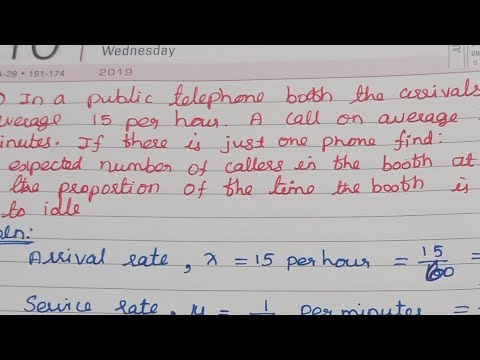 Wednesday
k-28 • 191-174
2019
In a public telephone booth the arrivals
verage 15 per hour. A call on average
inutes. If there is just one phone find:
expected number of callers in the booth at
the proportion of the time the booth is
to idle
oln:
Arrival rate, λ = 15 per hour = 15/60 =
Service rate, μ = 1 per minutes =